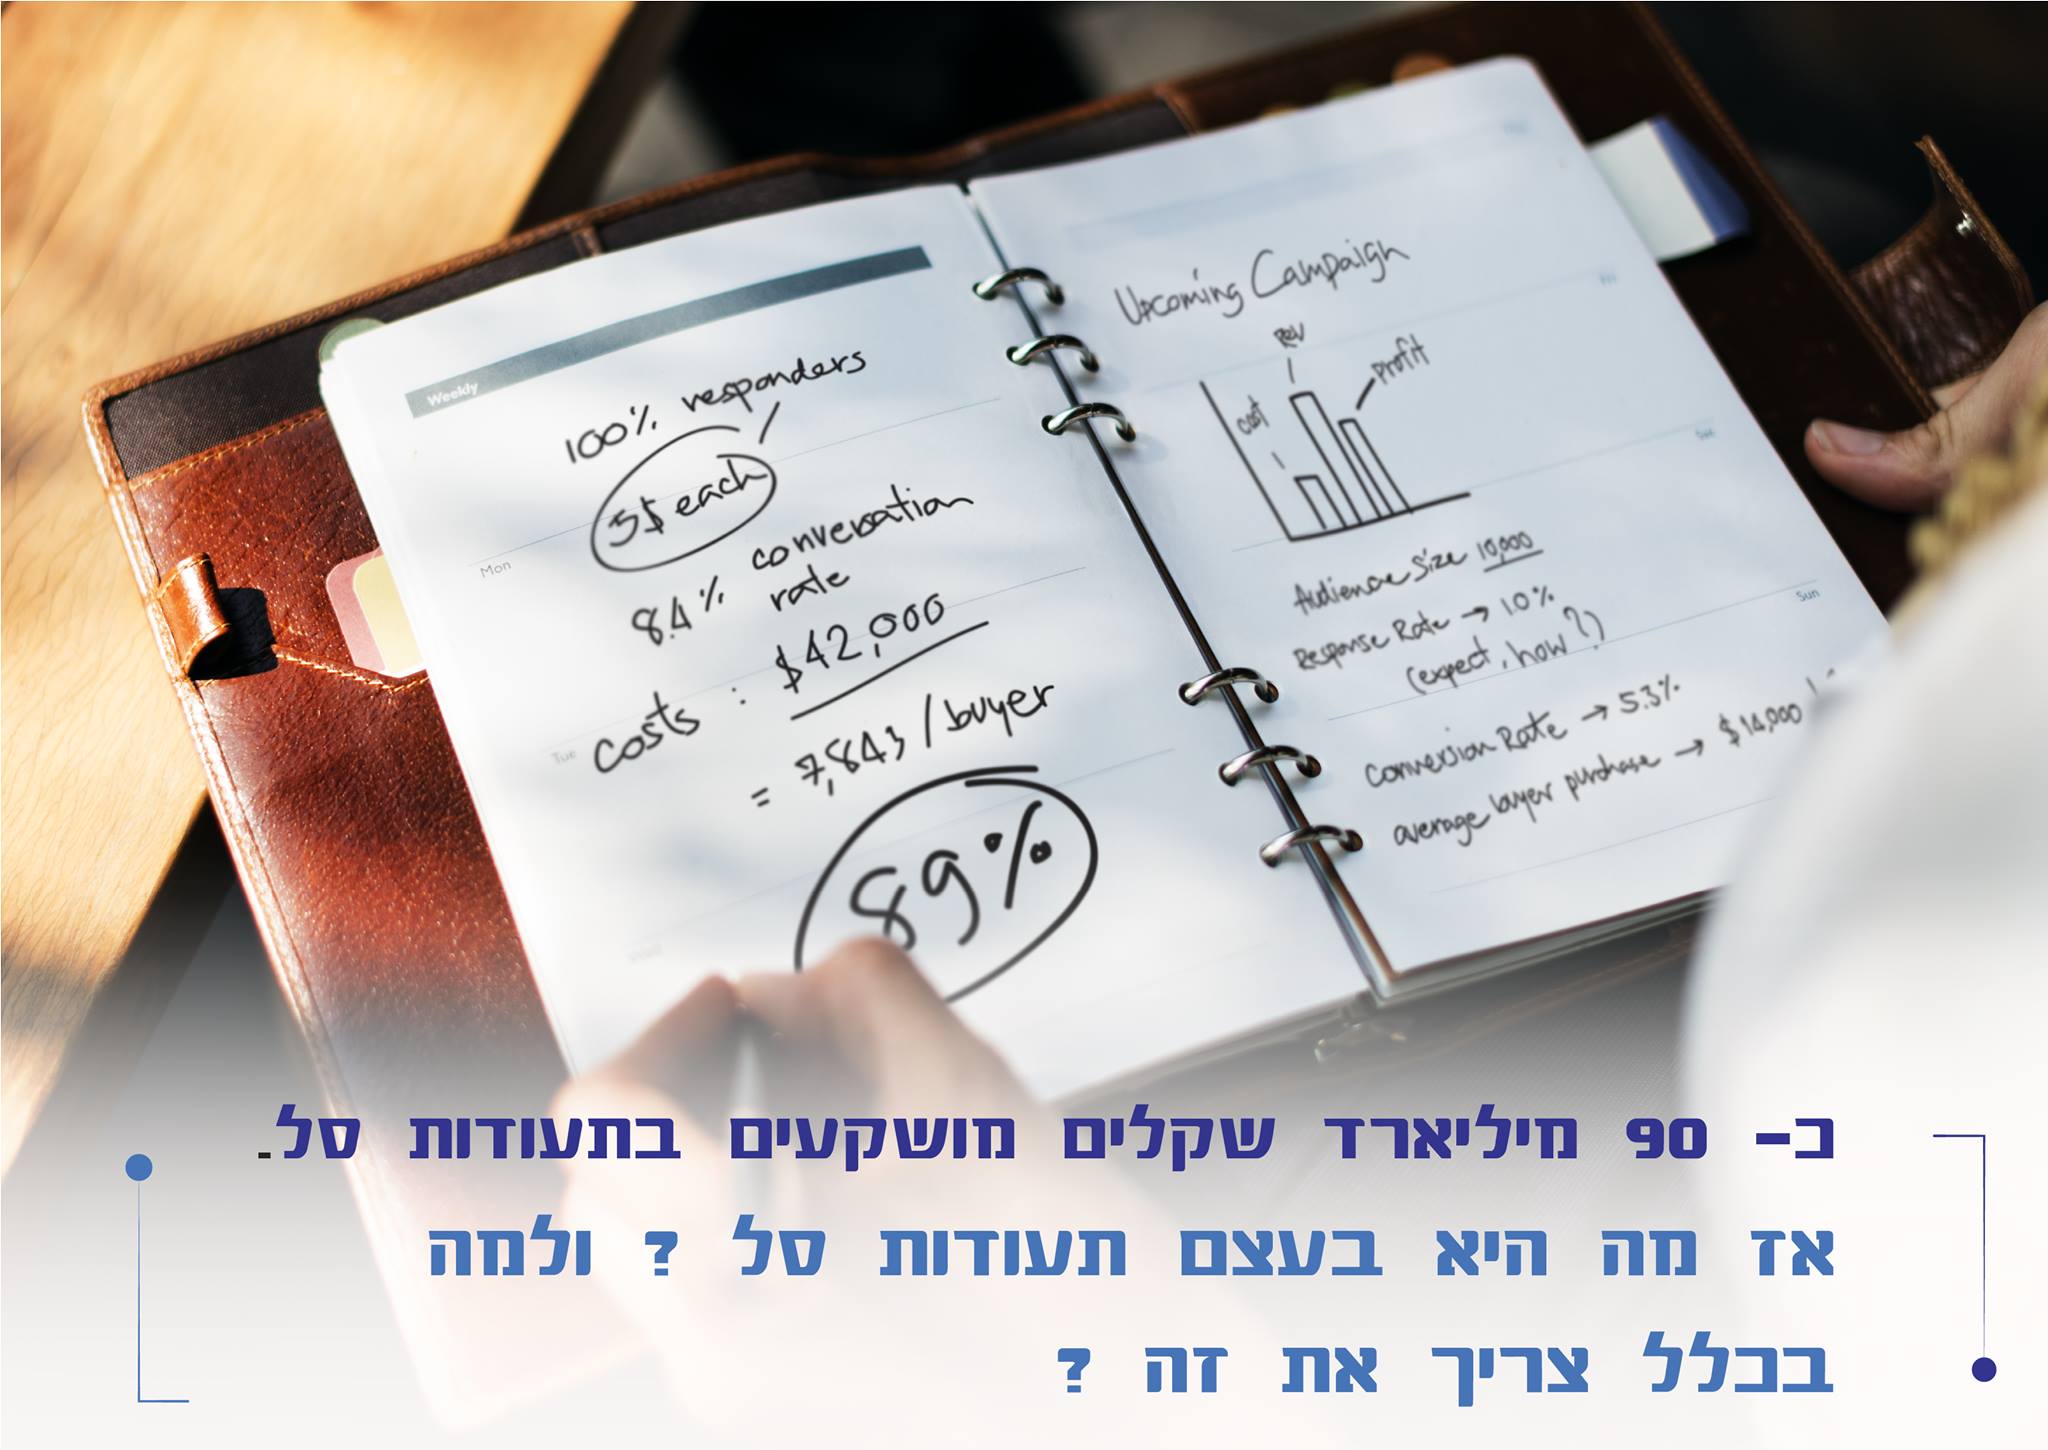 Weekly
100% responders
5$ each
Mon
8.4% conversation
rate
Tue
costs : $42,000
= 7,843 / buyer
89%
Upcoming Campaign
Rev
Profit
Cost
Fri
Sat
Audience Size 10,000
Sun
Response Rate → 10%
(expect, how?)
Conversion Rate → 5.3%
average buyer purchase → $14,000
כ- 90 מיליארד שקלים מושקעים בתעודות סל.
אז מה היא בעצם תעודות סל ? ולמה
בכלל צריך את זה ?